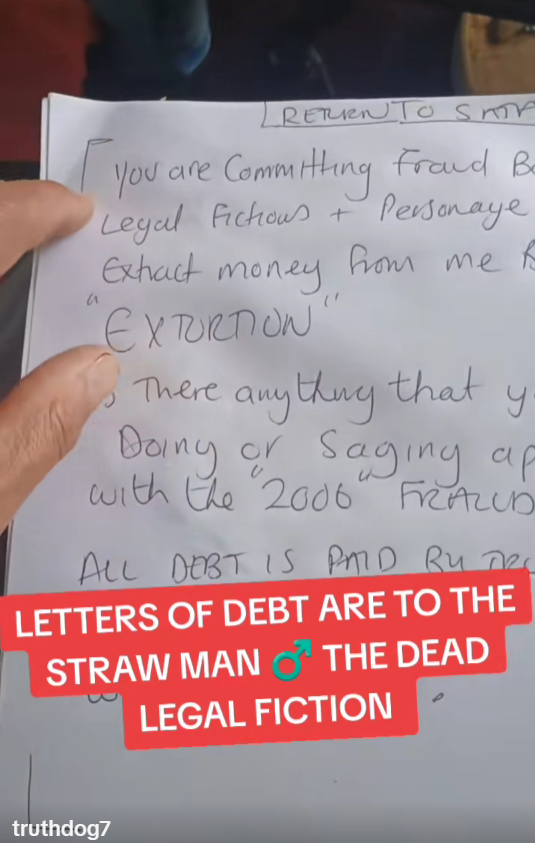 RETURN TO
You are Committing Fraud
Legal Fictions + Personage
Extract money from me
"EXTORTION"
There anything that
Doing or Saging
with the "2006" FRAUD
ALL DEBT IS PAID BY
LETTERS OF DEBT ARE TO THE
STRAW MAN ♂ THE DEAD
LEGAL FICTION
truthdog7